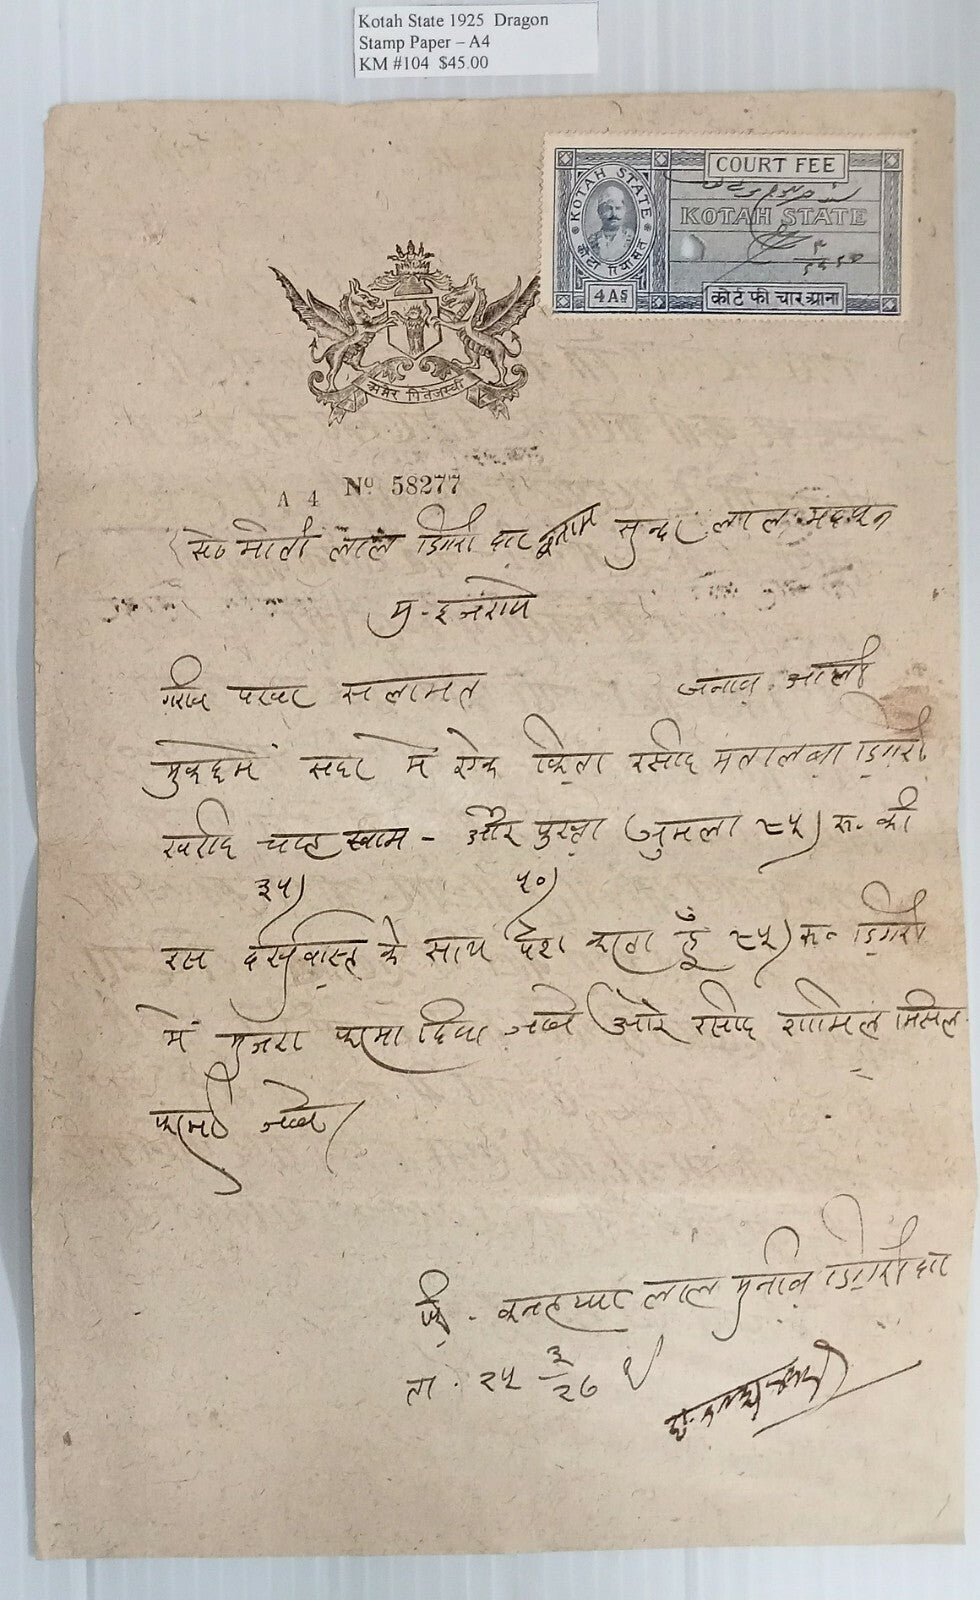 Kotah State 1925 Dragon
Stamp Paper – A4
KM #104 $45.00
COURT FEE
KOTAH STATE
KOTAH STATE
कोटा रियासत
4 AS
कोर्ट फी चार आना
A 4 Nº 58277
मोती लाल डिगरीदार बनाम सुन्दर लाल मदयून
मु - इजराये
गरीब परवर सलामत जनाब आली
मुकद्दमें सदर में ऐक किता रसीद मतालबा डिगरी
खरीद - और जुमला ८५) रू. की
३५) ५०)
दरखास्त के साथ पेश करता हूँ ८५) रू॰ डिगरी
में मुजरा फरमा दिया जावे और रसीद शामिल मिसल
फरमाई जावे
फि. कनहय्या लाल मुनीब डिगरीदार
ता. २५ ३/२७ ई